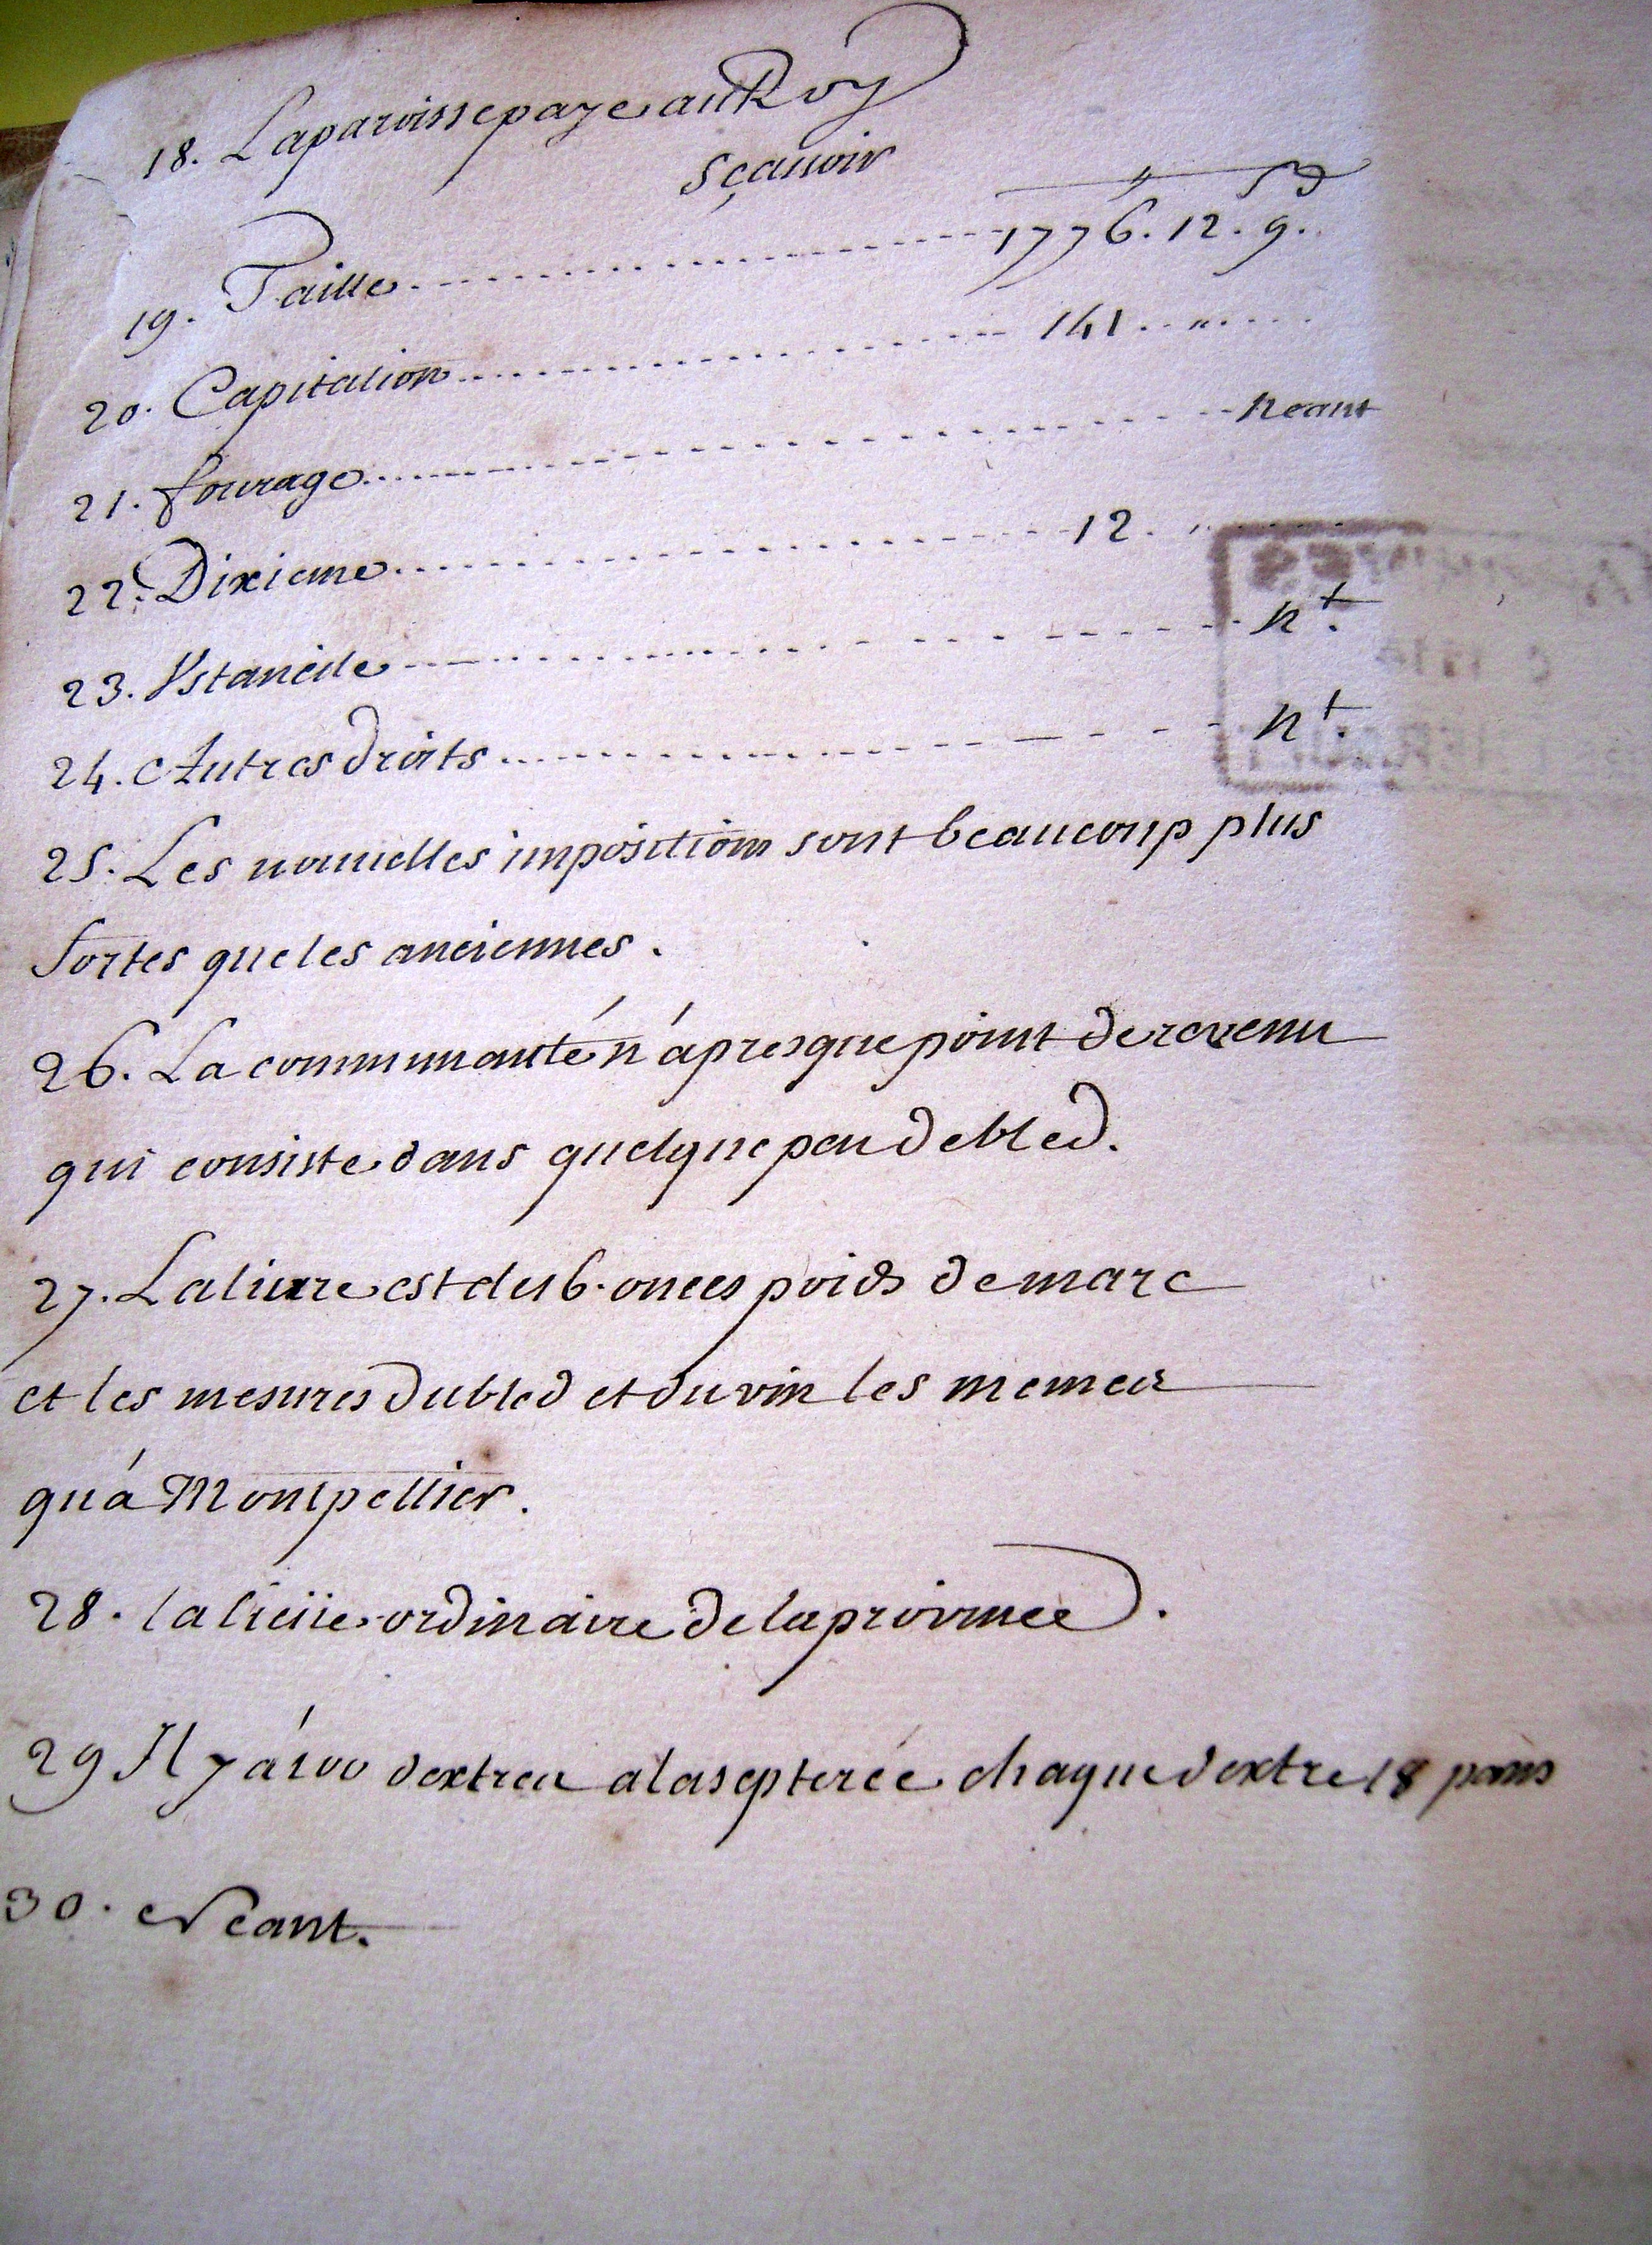 18. La paroisse paye au Roy
sçauoir
₶ s d
19. Taille 1776. 12. 9.
20. Capitation 141. "
21. fourage neant
22. Dixieme 12. "
23. Vstancile nt.
24. Autres droits nt.
25. Les nouuelles impositions sont beaucoup plus
fortes que les anciennes.
26. La communauté n'á presque point de revenu
qui consiste dans quelque peu de bled.
27. La liure est de 16. onces poids de marc
et les mesures du bled et du vin les memes
qu'á Montpellier.
28. la lieüe ordinaire de la province.
29 Il y á 100 dextres a la septerée chaque dextre 18 pans
30. Neant.